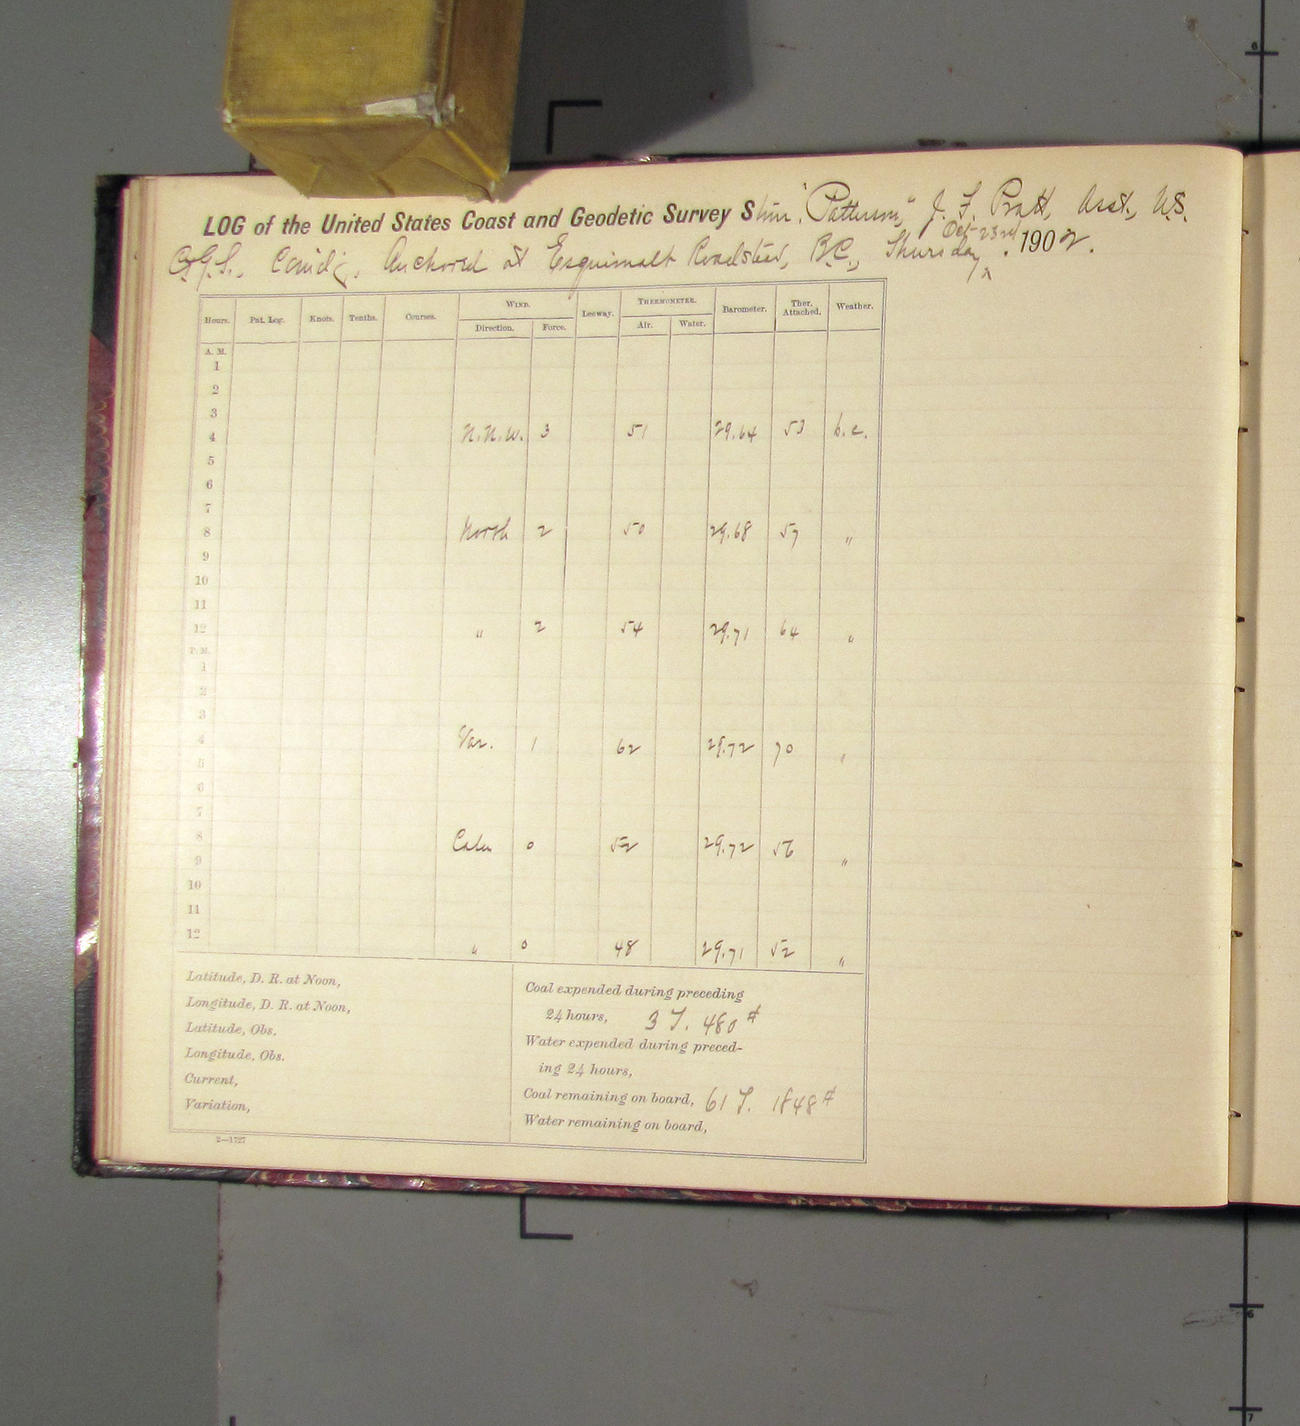 LOG of the United States Coast and Geodetic Survey "Patterson," J. F. Pratt, Asst., U.S.
C.&G.S., Comd'g. Anchored at Esquimalt Roadstead, B.C., Thursday, Oct-23rd 1902.
Hours. Pat. Log. Knots. Tenths. Courses. WIND. Leeway. THERMOMETER. Barometer. Ther. Attached. Weather.
Direction. Force. Air. Water.
A. M.
1
2
3
4 N.N.W. 3 51 29.64 53 b.c.
5
6
7
8 North 2 50 29.68 57 "
9
10
11
12 " 2 54 29.71 64 "
P. M.
1
2
3
4 Var. 1 62 29.72 70 "
5
6
7
8 Calm 0 52 29.72 56 "
9
10
11
12 " 0 48 29.71 52 "
Latitude, D. R. at Noon,
Longitude, D. R. at Noon,
Latitude, Obs.
Longitude, Obs.
Current,
Variation,
Coal expended during preceding
24 hours, 3 T. 480 #
Water expended during preced-
ing 24 hours,
Coal remaining on board, 61 T. 1848 #
Water remaining on board,
2—1727
6
6
7